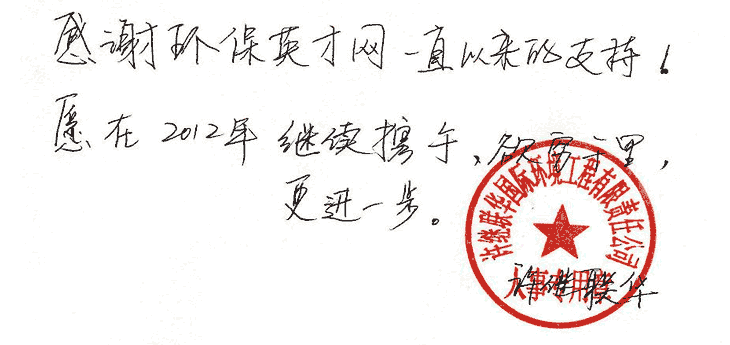 感谢环保英才网一直以来的支持!
愿在2012年继续携手、欲穷千里,
更进一步。
许继联华国际环境工程有限责任公司
人事专用章
许继联华